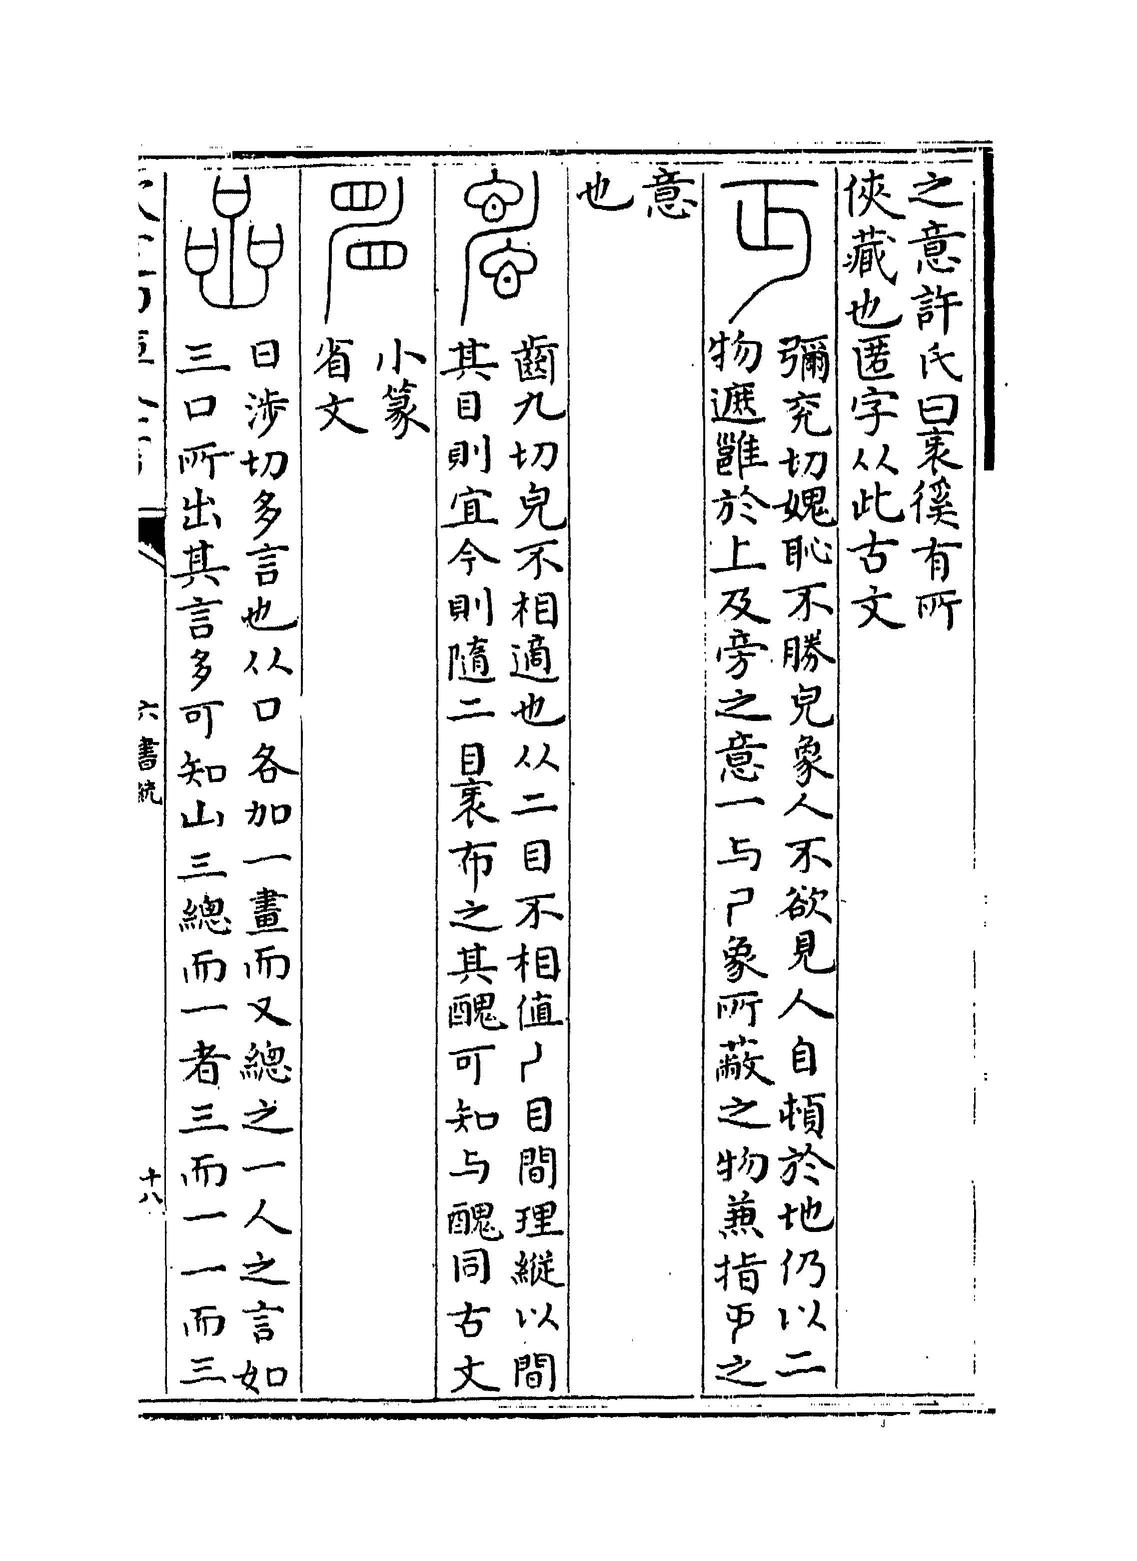 之意許氏曰衺徯有所
俠藏也匿字从此古文
彌兖切媿恥不勝皃象人不欲見人自頓於地仍以二
物遮雝於上及旁之意一与𠃜象所蔽之物蕪指丏之
意
也
齒九切皃不相適也从二目不相值丿目間理縱以間
其目則宜今則隨二目衺布之其醜可知与醜同古文
小篆
省文
日涉切多言也从口各加一畫而又總之一人之言如
三口所出其言多可知山三總而一者三而一一而三
六書統
十八